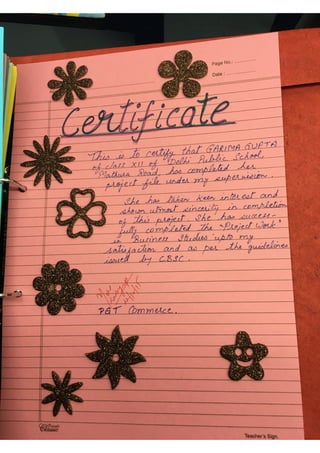 Page No.:
Date:
Certificate
This is to certify that GARIMA GUPTA
of class XII of "Delhi Public School,
Mathura Road, has completed her
project file under my supervision.
She has taken keen interest and
shown utmost sincerity in completion
of this project. She has success-
fully completed the "Project Work"
in Business Studies upto my
satisfaction and as per the guidelines
issued by C.B.S.C.
PGT Commerce.
Classmate
Teacher's Sign.